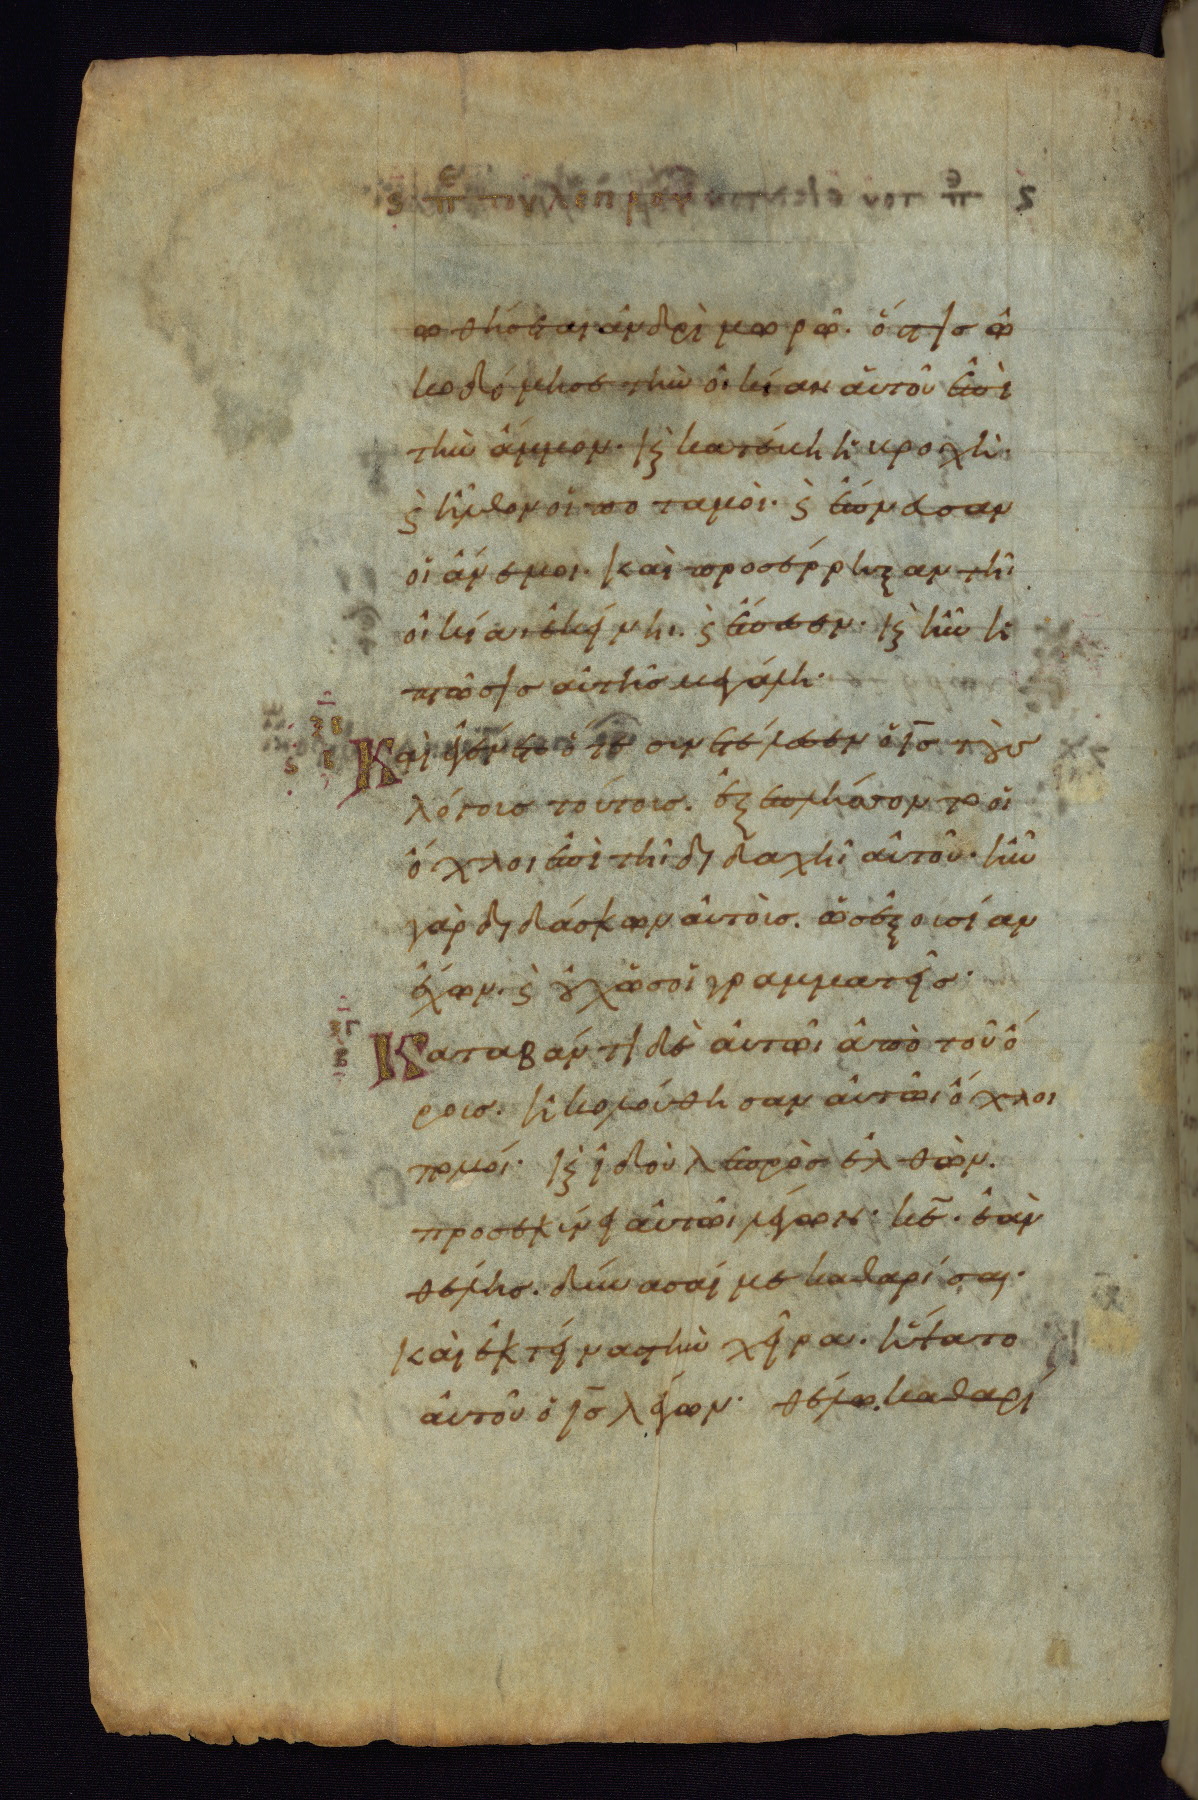 ϛ π̅ε̅ του λεπρου
ωθήσεται ἀνδρὶ μωρῶ. ὅστις ὠ
κοδόμησε τὴν οἰκίαν αὐτοῦ ἐπὶ
τὴν ἄμμον· καὶ κατέβη ἡ βροχὴ·
καὶ ἦλθον οἱ ποταμοὶ· καὶ ἔπνευσαν
οἱ ἄνεμοι· καὶ προσέρρηξαν τῆ
οἰκία ἐκείνη. καὶ ἔπεσεν· καὶ ἦν ἡ
πτῶσις αὐτῆς μεγάλη·
Καὶ ἐγένετο ὅτε συνετέλεσεν ὁ ι̅ς̅ τοὺς
λόγους τούτους. ἐξεπλήσσοντο οἱ
ὄχλοι ἐπὶ τῆ διδαχῆ αὐτοῦ· ἦν
γὰρ διδάσκων αὐτοὺς. ὡς ἐξουσίαν
ἔχων. καὶ οὐχ ὡς οἱ γραμματεῖς·
Καταβάντι δὲ αὐτῶι ἀπὸ τοῦ ὄ
ρους. ἠκολούθησαν αὐτῶι ὄχλοι
πολλοί· καὶ ἰδοὺ λεπρὸς ἐλθὼν.
προσεκύνει αὐτῶι λέγων· κ̅ε̅. ἐὰν
θέλης. δύνασαί με καθαρίσαι·
καὶ ἐκτείνας τὴν χεῖρα. ἥψατο
αὐτοῦ ὁ ι̅ς̅ λέγων· θέλω. καθαρί